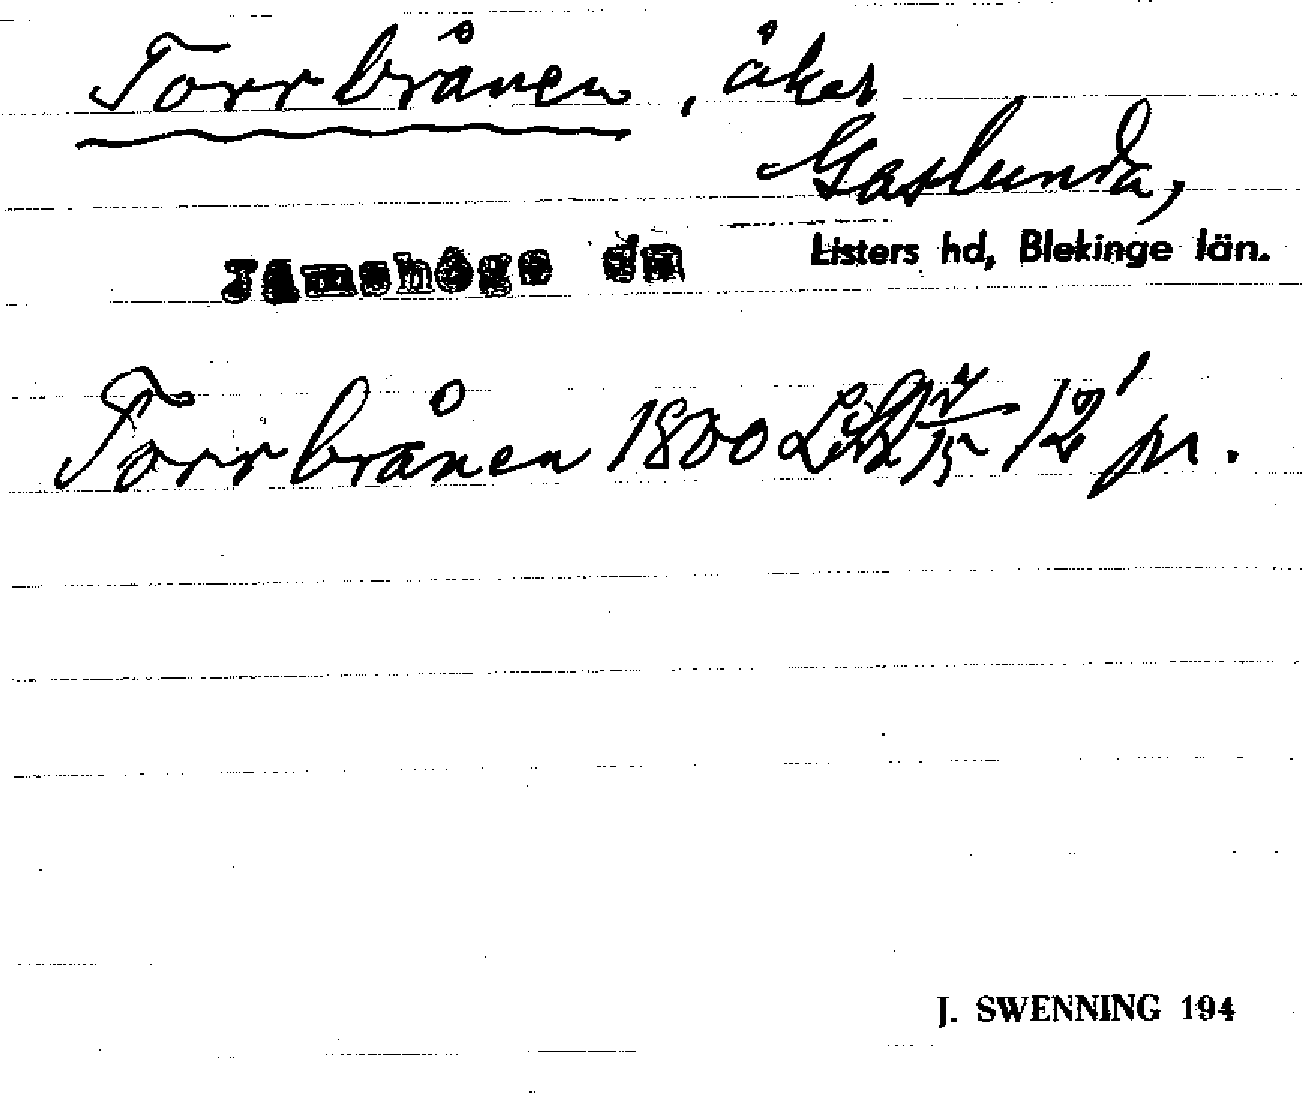 Torrbrånen, åker
Gaslunda,
Jämshögs sn Listers hd, Blekinge län.
Torrbrånen 1800 12' pr.
J. SWENNING 194